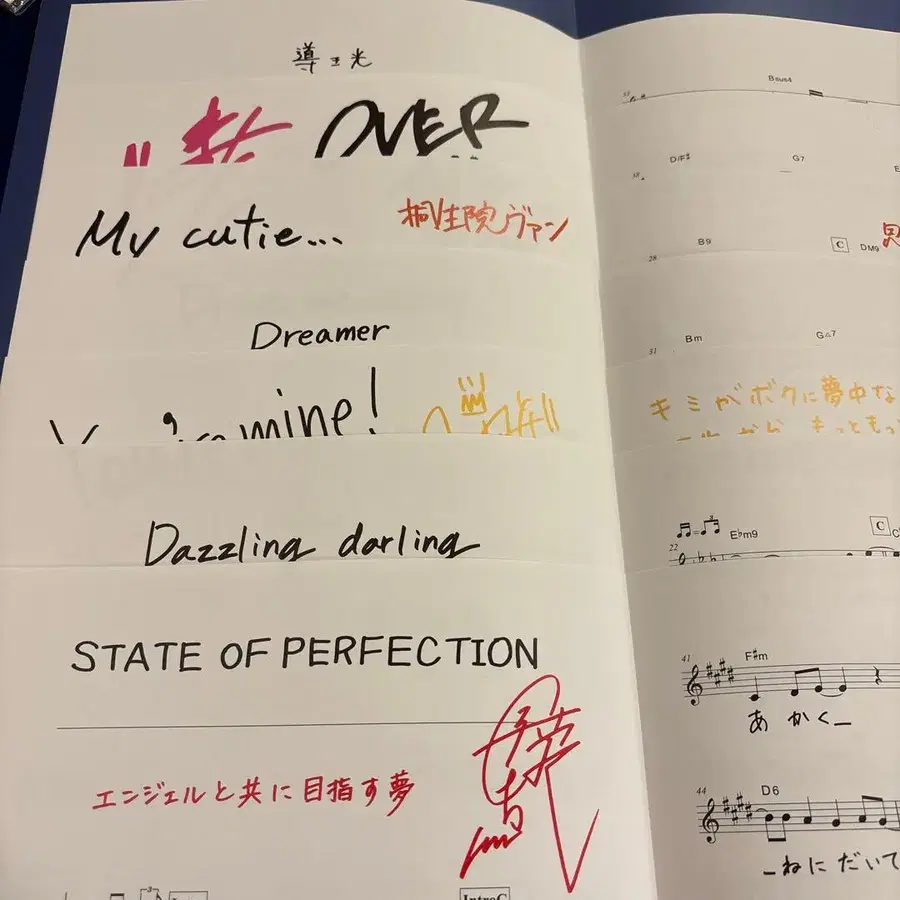 導き光
OVER
My cutie...
桐生院ヴァン
Dreamer
mine!
Dazzling darling
STATE OF PERFECTION
エンジェルと共に目指す夢
IntroC
Bsus4
D/F#
G7
B9
C
DM9
28
Bm
G△7
31
キミがボクに夢中な
E♭m9
C
22
41
F#m
あかく_
44
D6
_ねに だいて